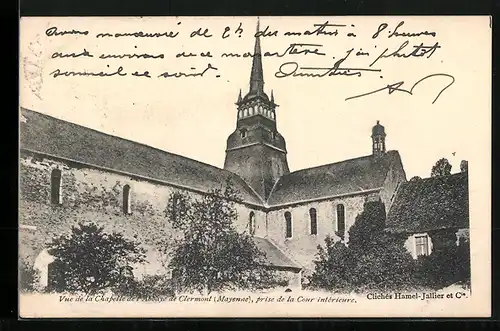 avons manœuvré de 2h du matin à 8 heures
aux environs de ce monastère, j'ai plutôt
sommeil ce soir.
Vue de la Chapelle de l'Abbaye de Clermont (Mayenne), prise de la Cour intérieure.
Clichés Hamel-Jallier et Cie